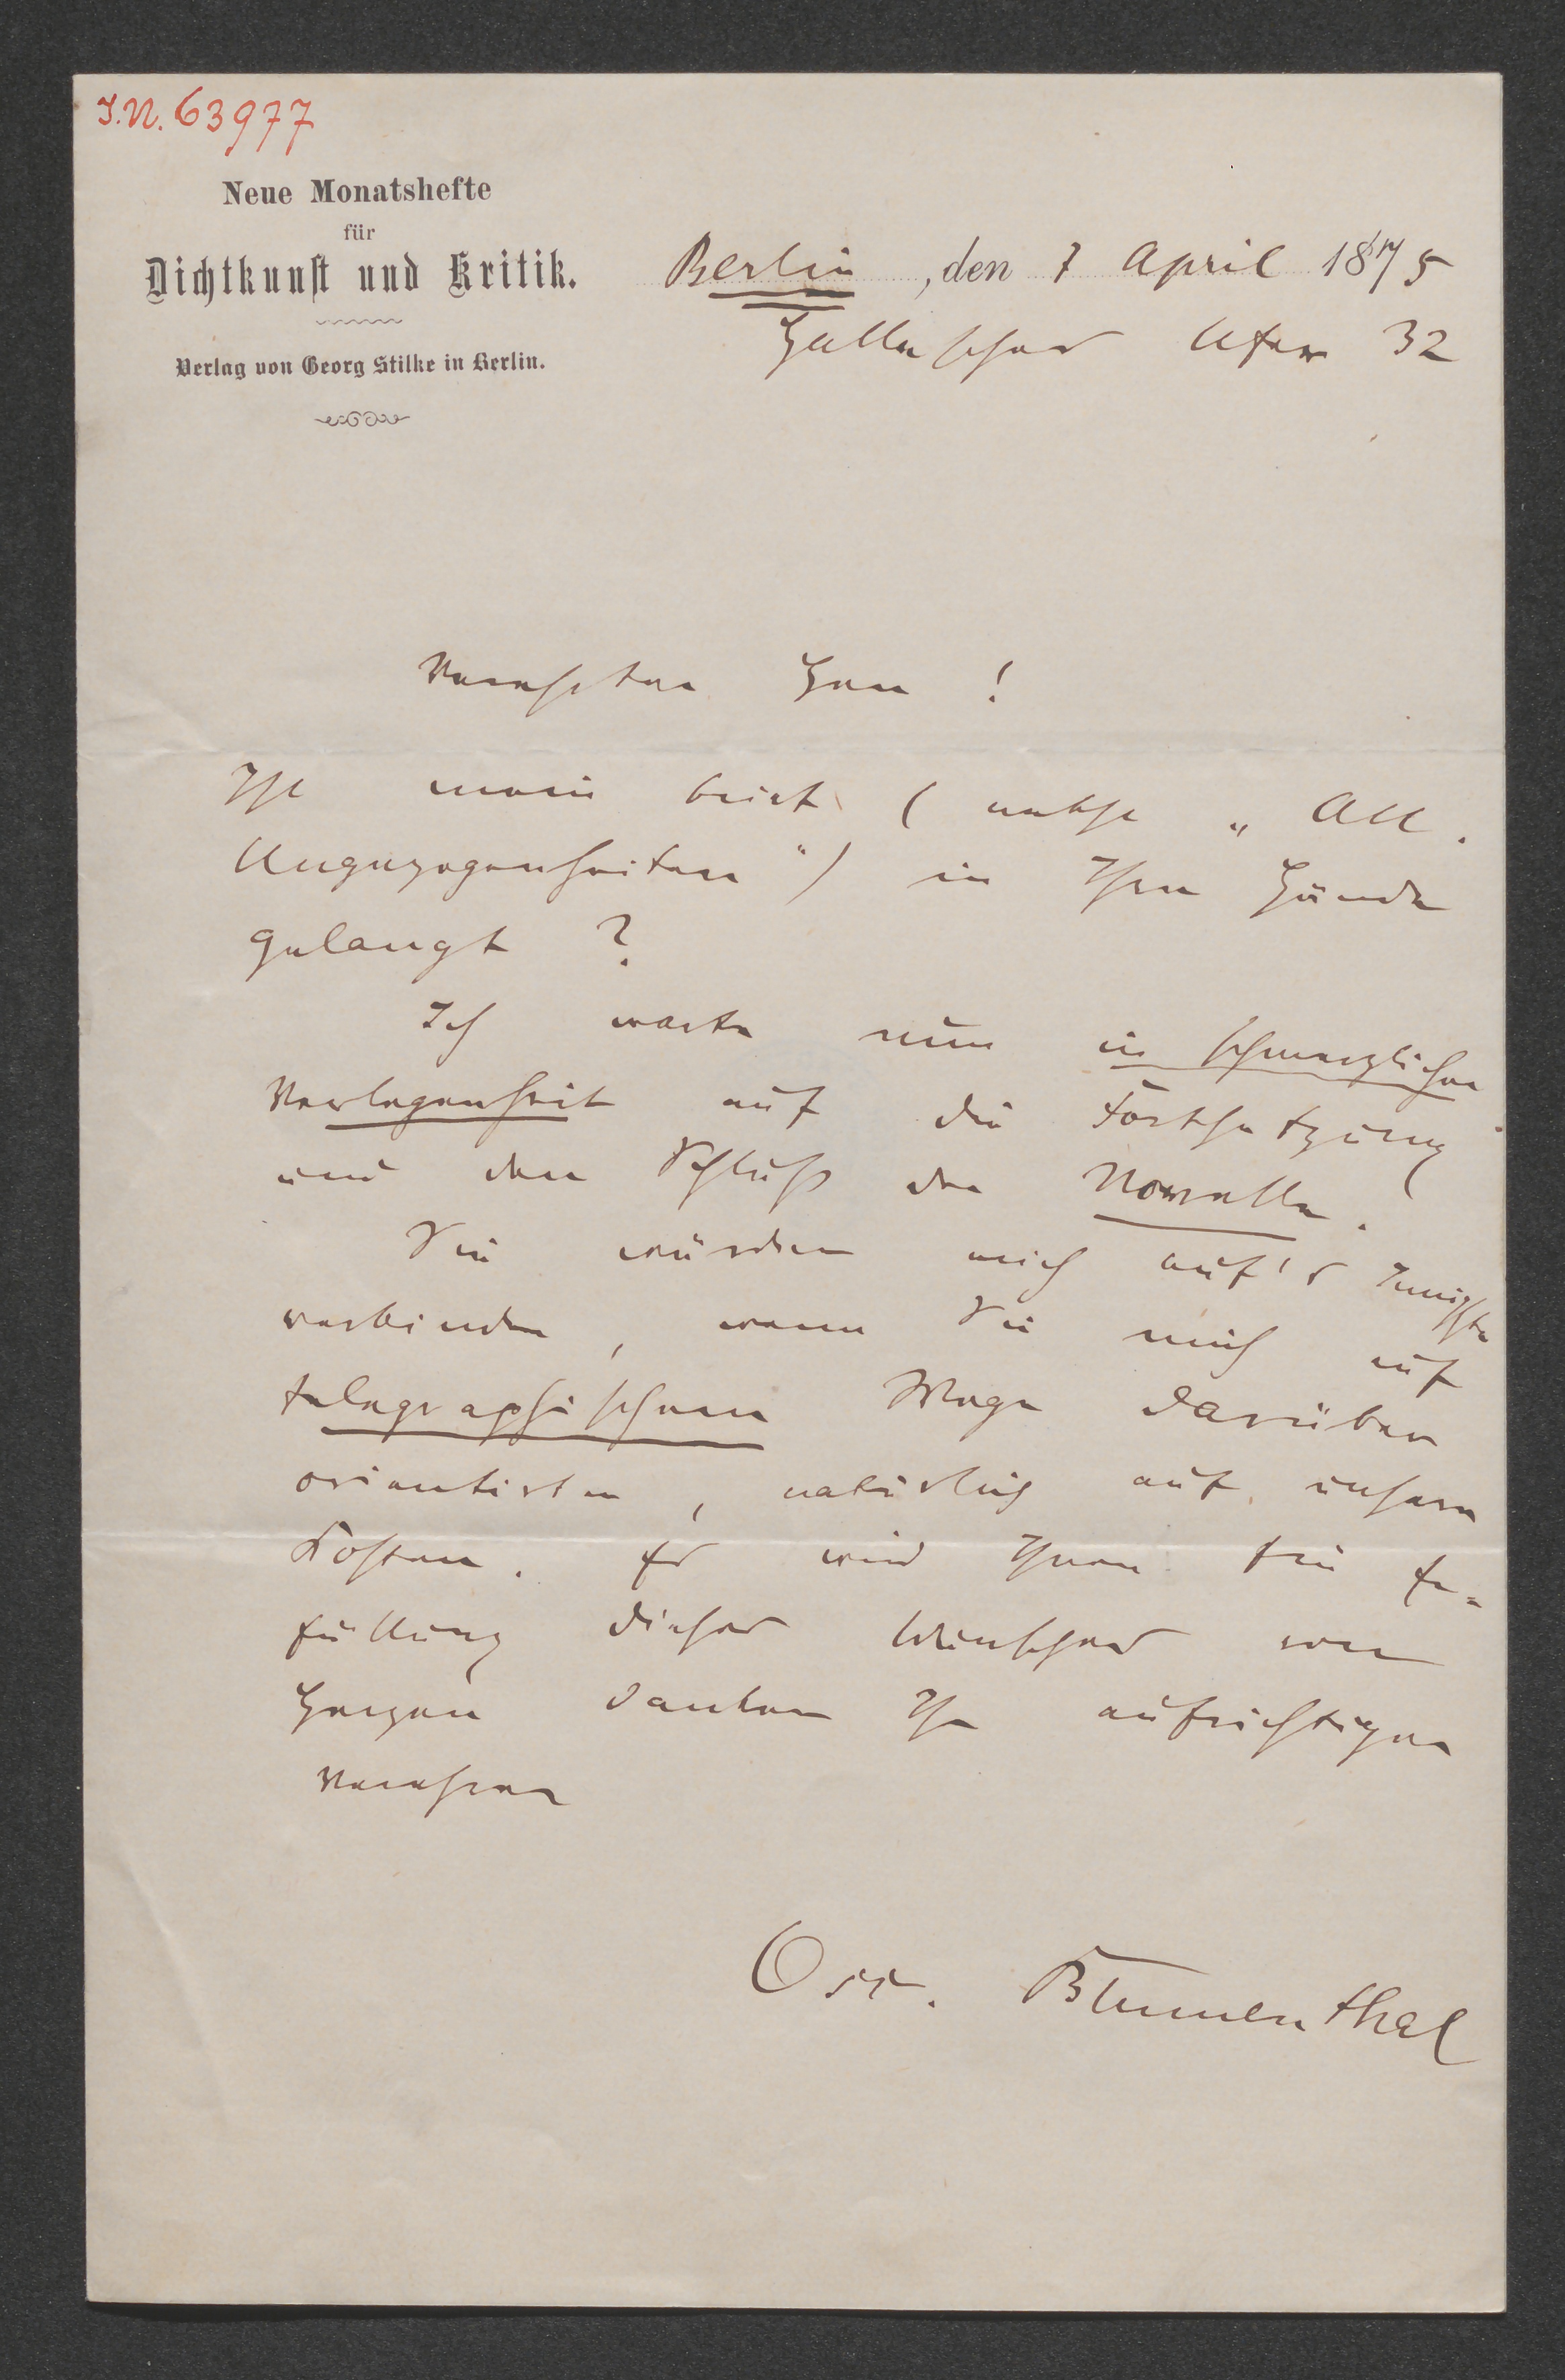 J.N. 63977
Neue Monatshefte
für
Dichtkunst und Kritik.
Verlag von Georg Stilke in Berlin.
Berlin, den 7 April 1875
Hallesches Ufer 32
Verehrter Herr!
Ist mein Brief (nebst „All.
Ungezogenheiten“) in Ihre Hände
gelangt?
Ich warte nun in schmerzlicher
Verlegenheit auf die Fortsetzung
und den Schluß der Novelle.
Sie würden mich auf's Innigste
verbinden, wenn Sie mich auf
telegraphischem Wege darüber
orientirten, natürlich auf unsere
Kosten. Es wird Ihnen die Er-
füllung dieses Wunsches von
Herzen danken Ihr aufrichtiger
Verehrer
Osc. Blumenthal